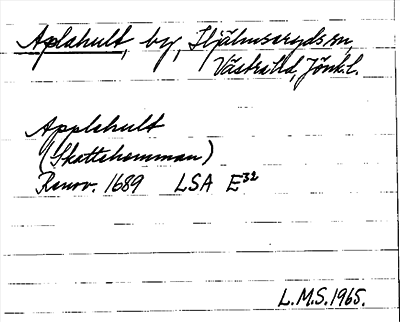 Aplahult, by, Hjälmseryds sn,
Västra hd, Jönk. l.
Applahult
(Skattehemman)
Renov. 1689 LSA E³²
L.M.S. 1965.